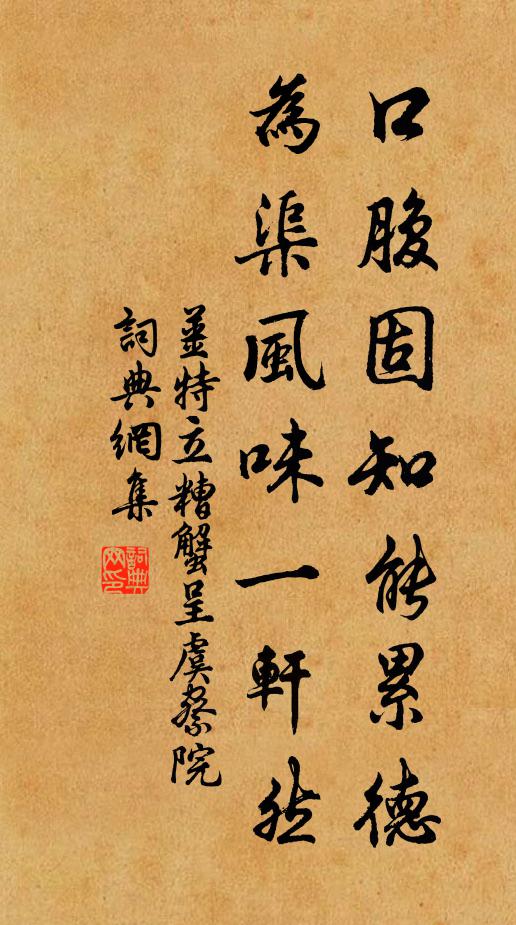 口腹固知能累德
為渠風味一軒然
姜特立糟蟹呈虞察院
詞典網集
詞典
網印